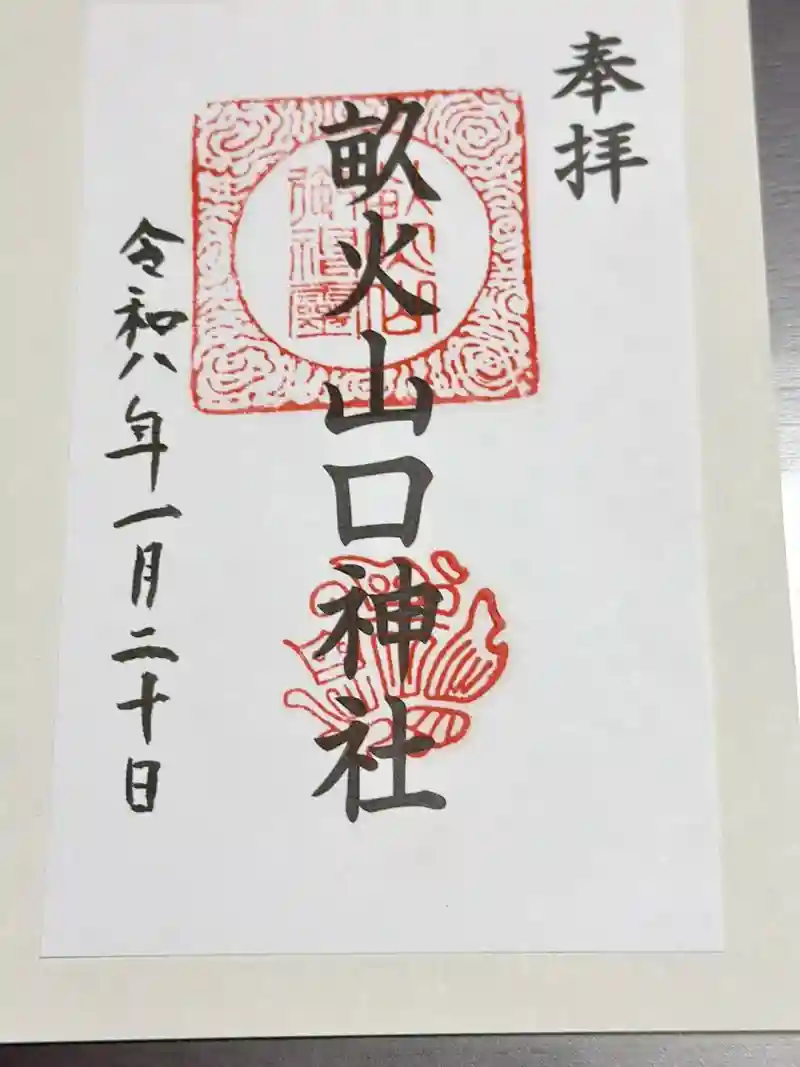 奉拝
畝火山口神社
令和八年一月二十日